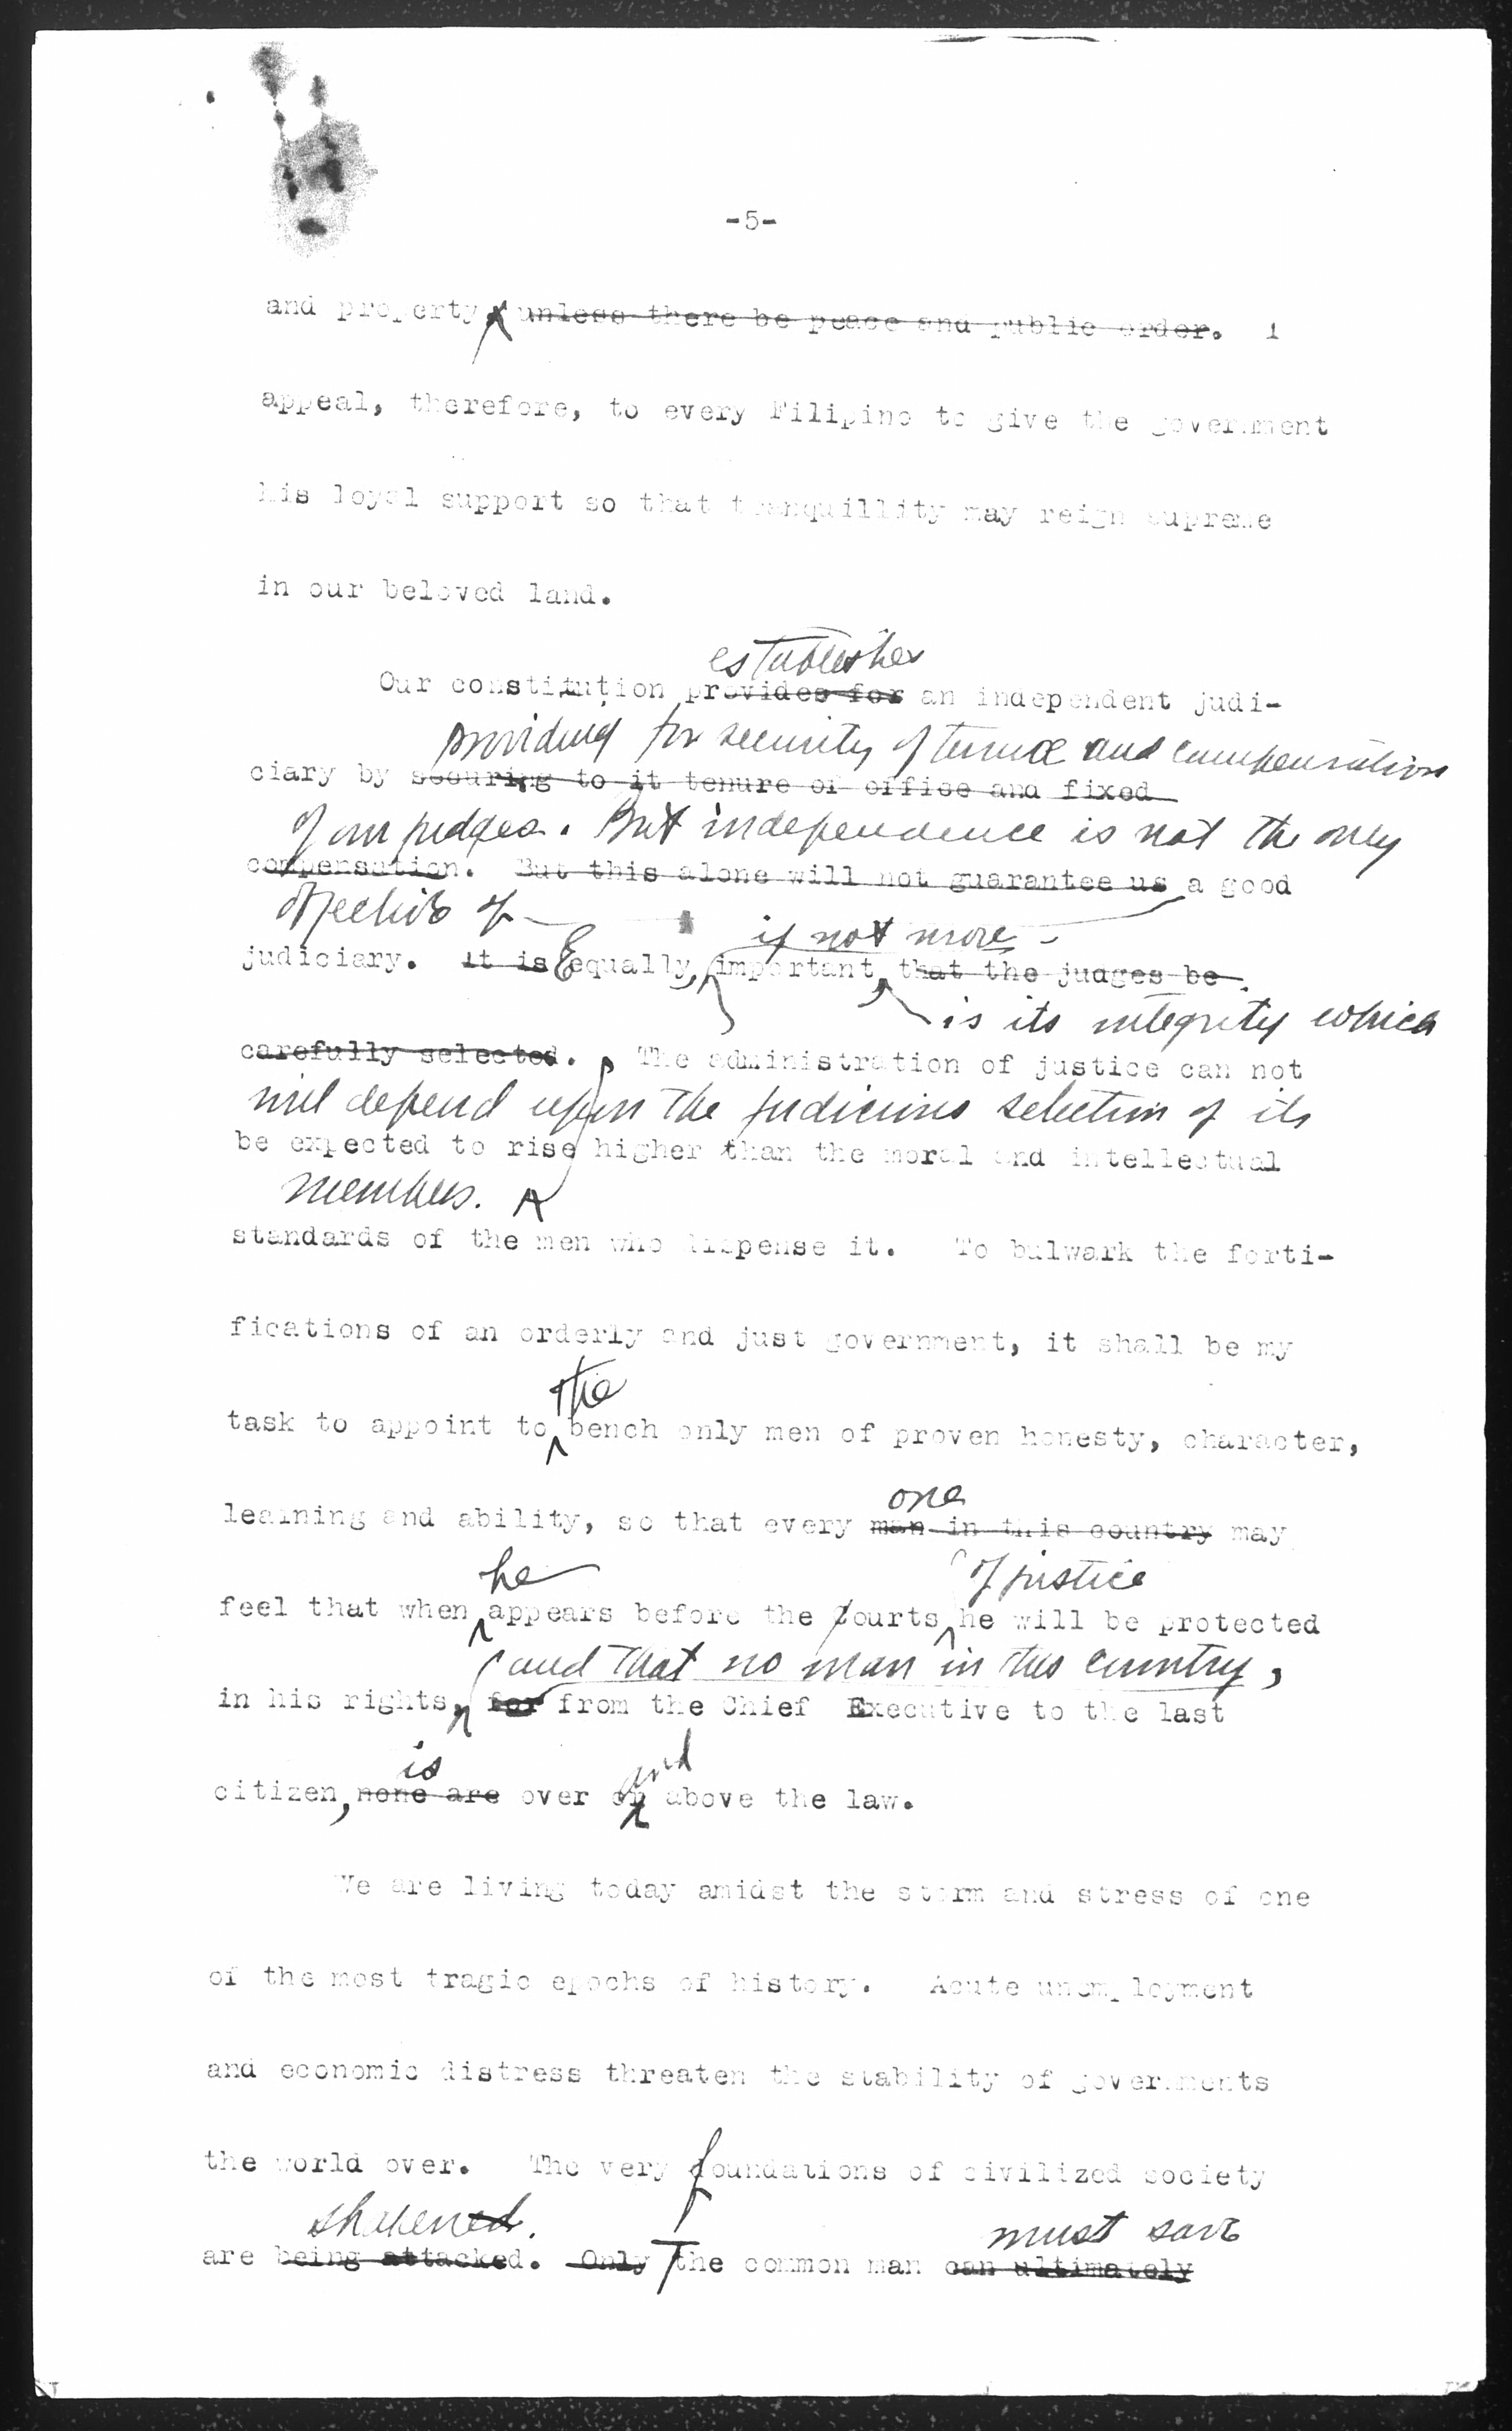 -5-
and property. unless there be peace and public order. I
appeal, therefore, to every Filipino to give the government
his loyal support so that tranquillity may reign supreme
in our beloved land.
establishes
Our constitution provides for an independent judi-
providing for security of tenure and compensation
ciary by securing to it tenure of office and fixed
of our judges. But independence is not the only
compensation. But this alone will not guarantee us a good
objective of
if not more
judiciary. It is Equally, important, that the judges be
is its integrity which
carefully selected. The administration of justice can not
will depend upon the judicious selection of its
be expected to rise higher than the moral and intellectual
members.
standards of the men who dispense it. To bulwark the forti-
fications of an orderly and just government, it shall be my
the
task to appoint to bench only men of proven honesty, character,
one
learning and ability, so that every man in this country may
he of justice
feel that when appears before the courts he will be protected
and that no man in this country,
in his rights, for from the Chief Executive to the last
is and
citizen, none are over or above the law.
We are living today amidst the storm and stress of one
of the most tragic epochs of history. Acute unemployment
and economic distress threaten the stability of governments
the world over. The very foundations of civilized society
shakened. must save
are being attacked. Only The common man can ultimately